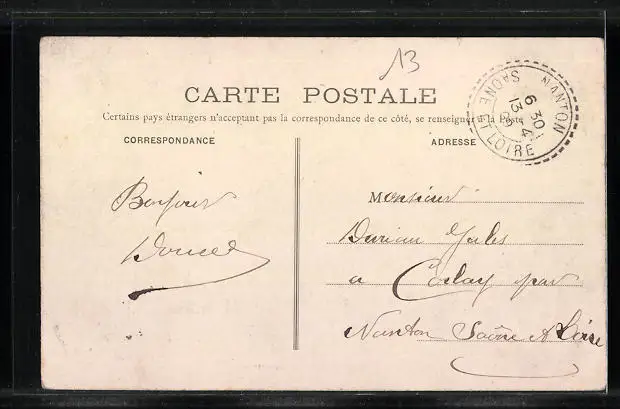 13
CARTE POSTALE
Certains pays étrangers n'acceptant pas la correspondance de ce côté, se renseigner à la Poste
NANTON
6 30
13 4
SAONE ET LOIRE
CORRESPONDANCE
ADRESSE
Bonjour
Monsieur
Jules
a par
Nanton Saône et Loire